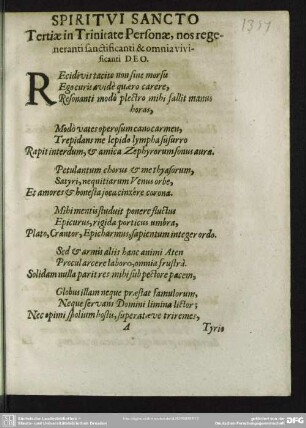 SPIRITVI SANCTO
Tertiæ in Trinitate Personæ, nos rege-
neranti sanctificanti & omnia vivi-
ficanti DEO.
1317
REcidevis tacito non sine morsu
Ego curis avidè quæro carere,
Resonanti modò plectro mihi fallit manus
horas,
Modò vates operosum cano carmen,
Trepidans me lepido lympha susurro
Rapit interdum, & amica Zephyrorum sonus aura.
Petulantum chorus & methyasorum,
Satyri, nequitiarum Venus orbe,
Et amores & honesta joca cinxére corona.
Mihi mentis studuit ponere fluctus
Epicurus, rigida porticus umbra,
Plato, Crantor, Epicharmus, sapientum integer ordo.
Sed & armis aliis hanc animi Aten
Procul arcere laboro, omnia frustrà.
Solidam nulla parit res mihi sub pectore pacem,
Globus illam neque præstat famulorum,
Neque servans Domini limina lictor;
Nec opimi spolium hostis, superatæve triremes,
A
Tyrio